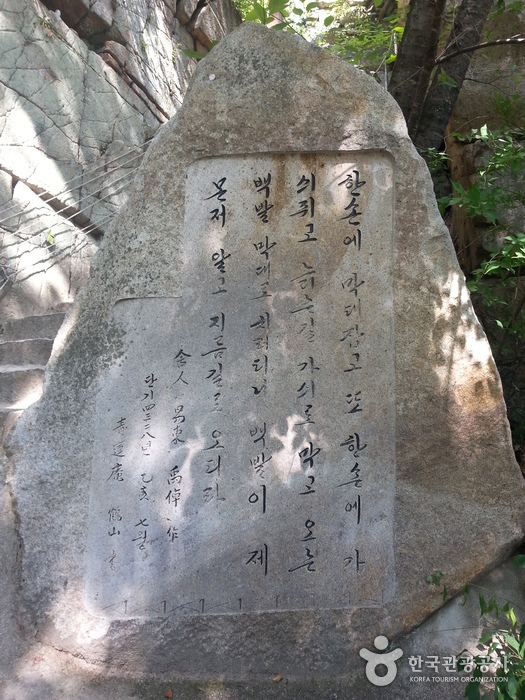 한손에 막대잡고 또 한손에 가
싀쥐고 늙는길 가싀로 막고 오는
백발 막대로 치려터니 백발이 제
몬저 알고 지름길로 오더라
舍人 易東 禹倬 作
단기四三二八년 乙亥 七월
鶴山
한국관광공사
KOREA TOURISM ORGANIZATION